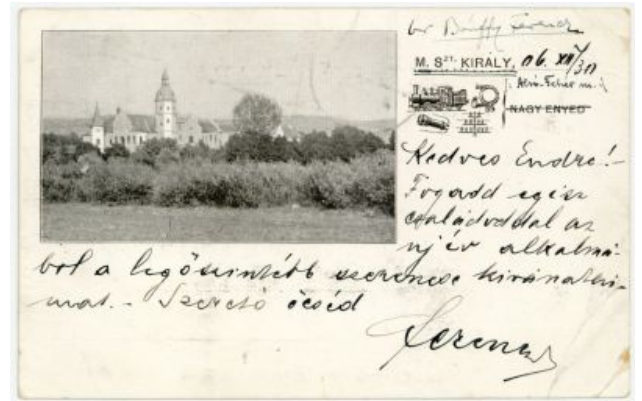 br Bánffy Ferencz
M. SZT. KIRÁLY, 06. XII/30
Alsó-Fehér m.
NAGY ENYED
Kedves Endre!-
Fogadd egész
családoddal az
uj év alkalmá-
ból a legőszintébb szerencse kivánatai-
mat.- Szerető öcséd
Ferencz